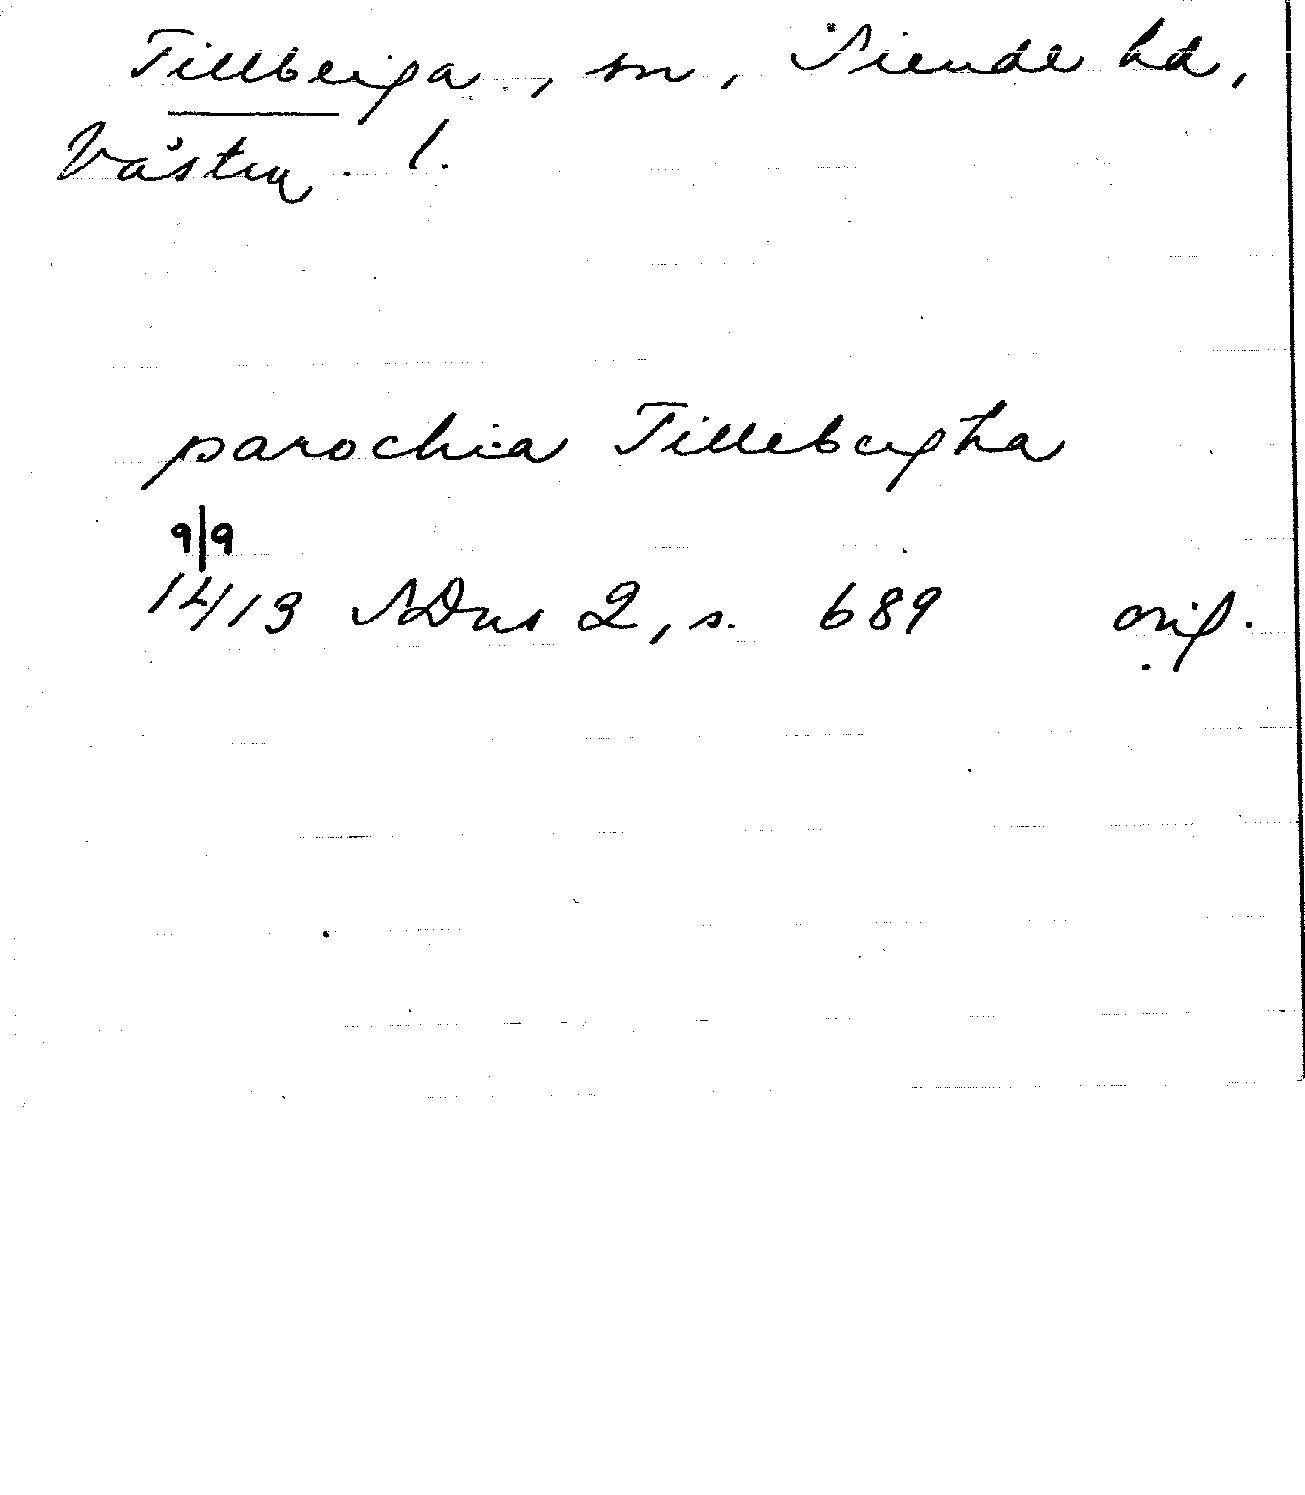 Tillberga, sn, Siende hd,
Västm. l.
parochia Tillebergha
9/9
1413 SDns 2, s. 689 orig.